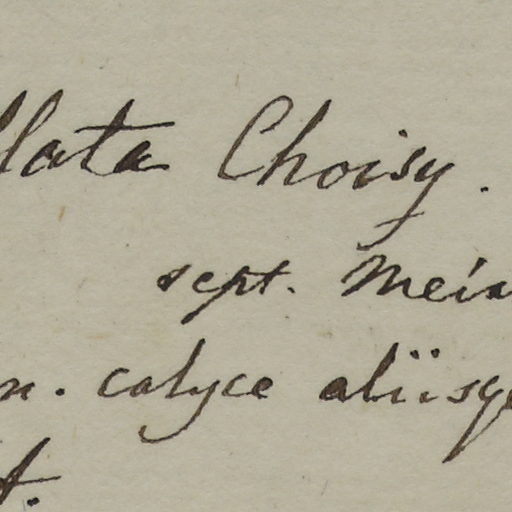 llata Choisy.
sept. Meis
n. calyce aliisque
t.